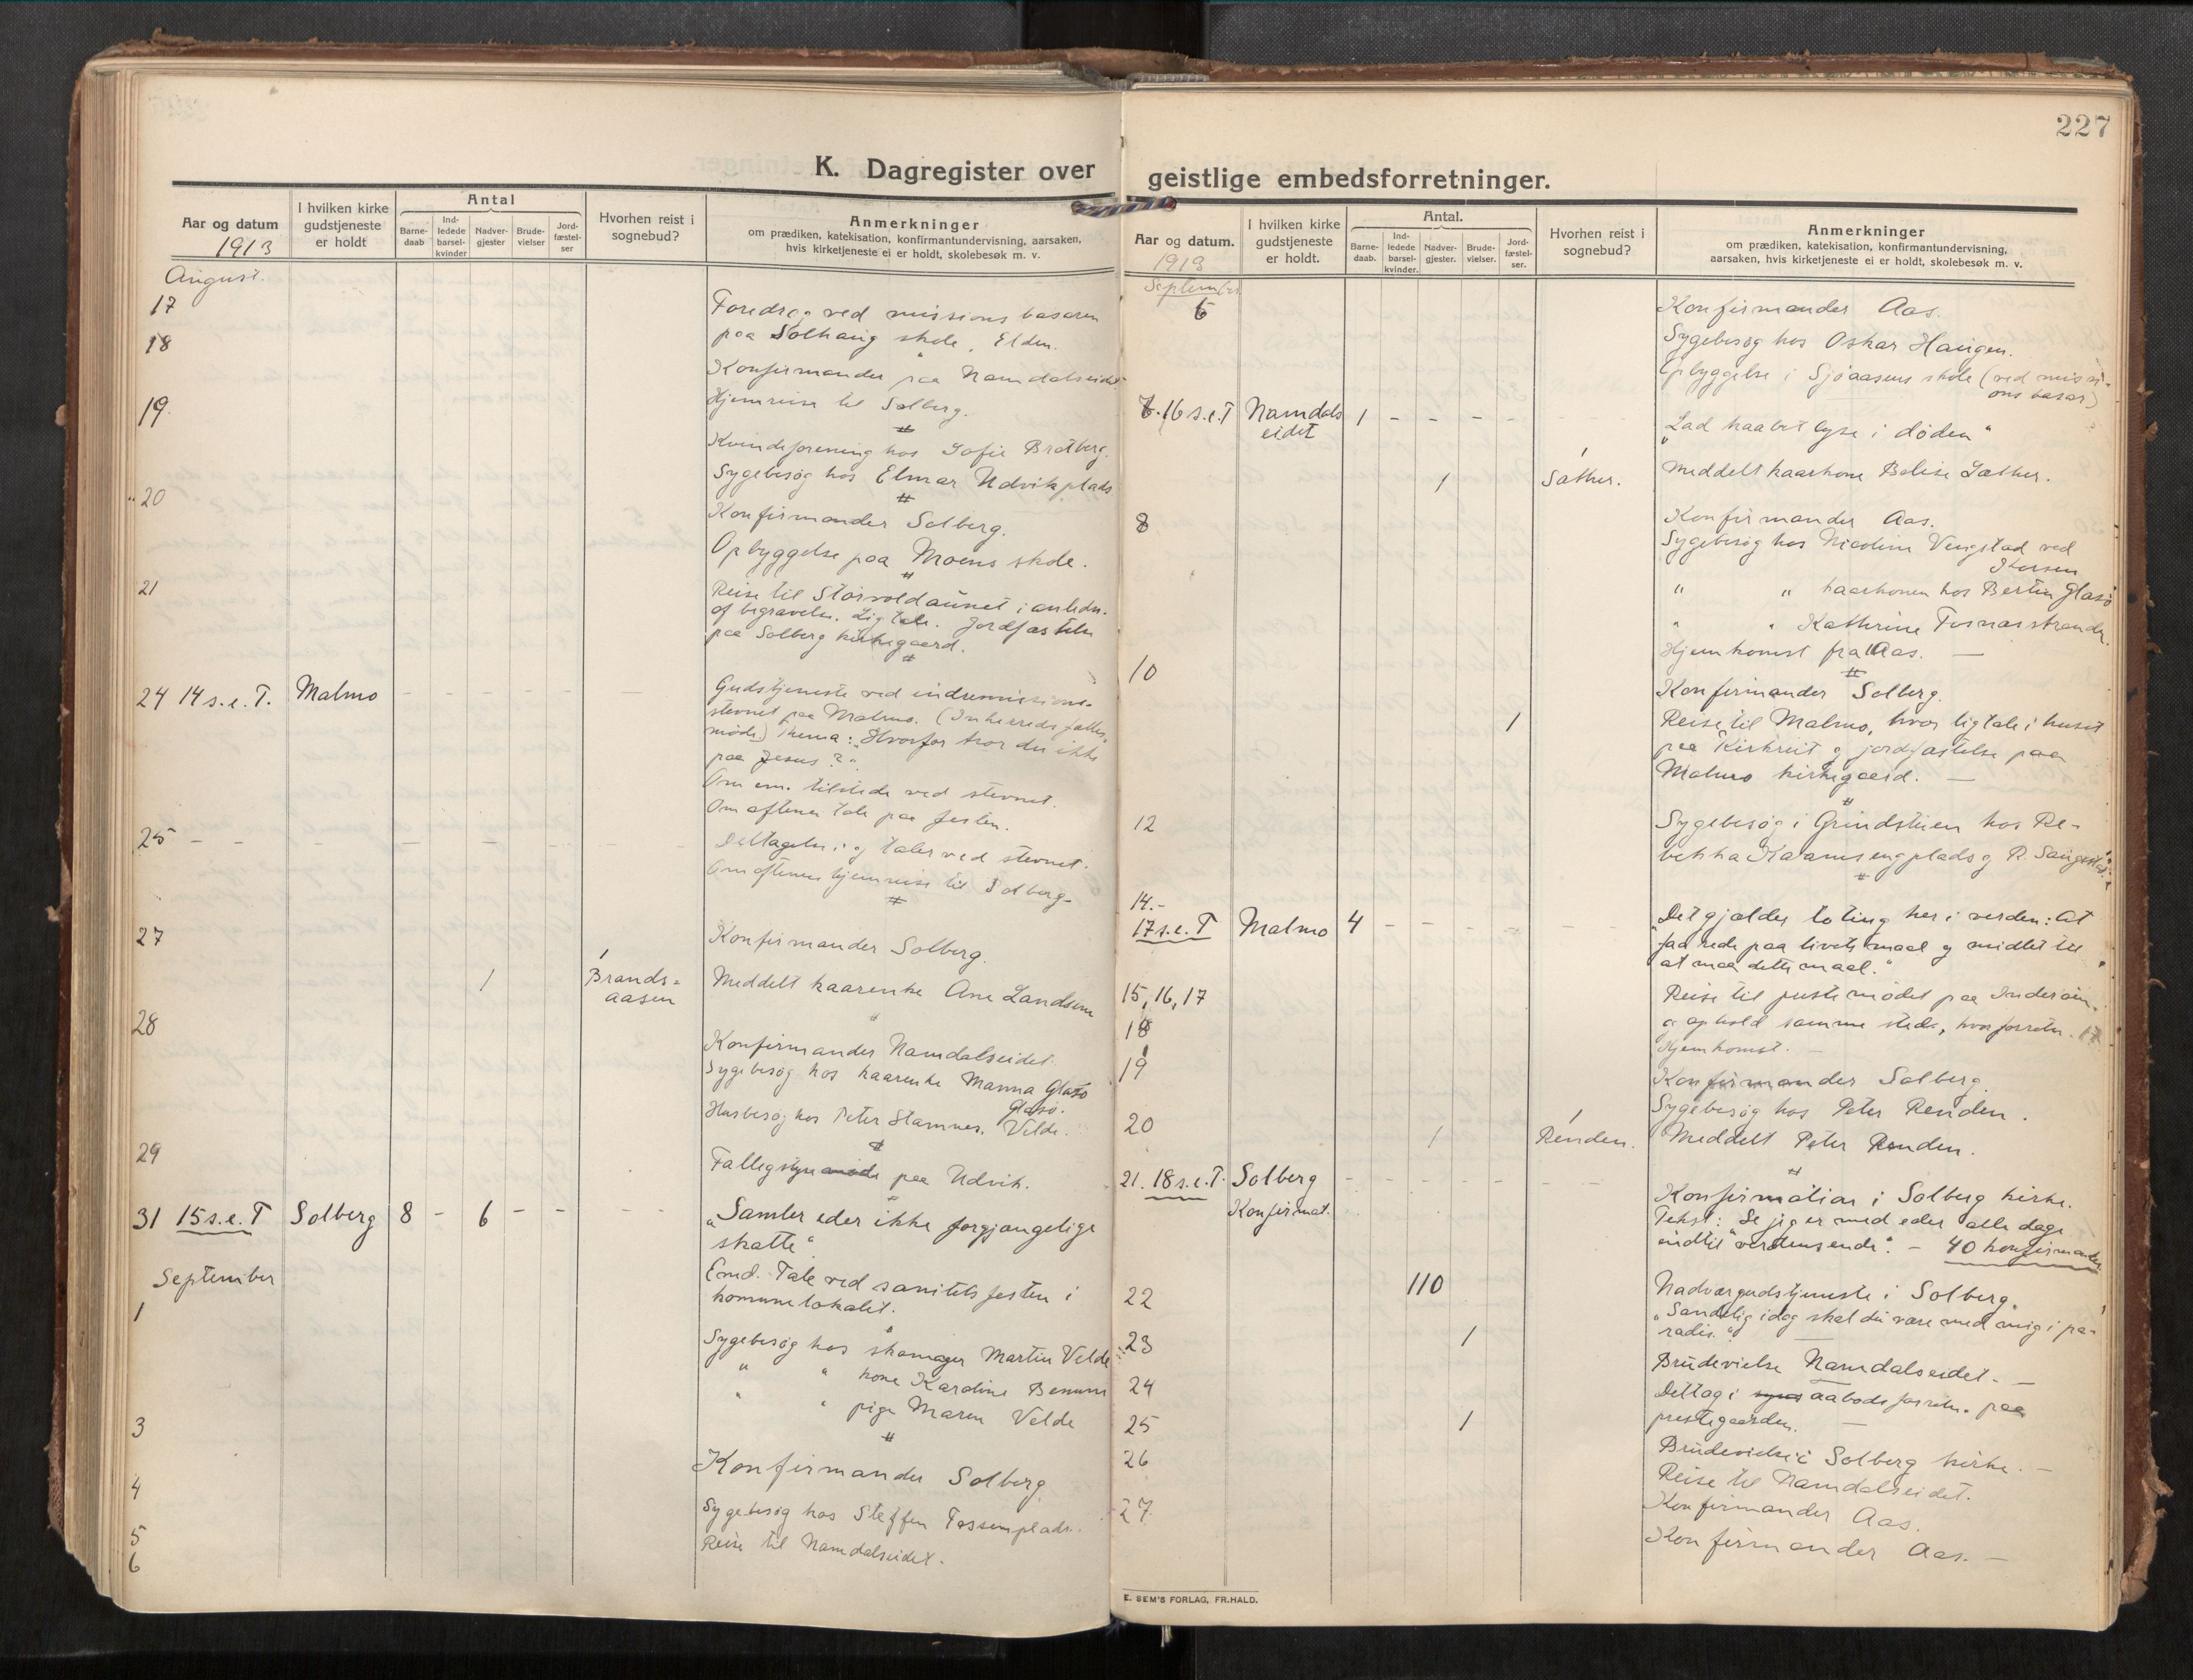 227
K. Dagregister over
geistlige embedsforretninger.
Aar og datum
1913
I hvilken kirke
gudstjeneste
er holdt
Antal
Barne-
daab
Ind-
ledede
barsel-
kvinder
Nadver-
gjester
Brude-
vielser
Jord-
fæstel-
ser
Hvorhen reist i
sognebud?
Anmerkninger
om prædiken, katekisation, konfirmantundervisning, aarsaken,
hvis kirketjeneste ei er holdt, skolebesøk m. v.
August.
17
Foredrag ved missions basaren
paa Solhaug skole, Elden.
18
Konfirmander paa Namdalseidet
Hjemreise til Solberg.
19.
Kvindeforening hos Sofie Bratberg.
Sygebesøg hos Elmar Udvikplads
20
Konfirmander Solberg.
Opbyggelse paa Moens skole.
21
Reise til Storvoldaunet i anledn.
af begravelse. Ligtale. Jordfæstelse
paa Solberg kirkegaard.
24 14 s.e.T. Malmo - - - - - -
Gudstjeneste ved indremissions-
stevnet paa Malmo. (Inherreds fælles
møde) Thema: "Hvorfor tror du ikke
paa Jesus?"
Om em. tilstede ved stevnet.
Om aftenen tale paa festen.
25 - - - - - - - -
Deltagelse i og taler ved stevnet.
Om aftenen hjemreise til Solberg-
27
Konfirmander Solberg.
1 1
Brands=
aasen
Meddelt kaarenke Ane Landsem
28
Konfirmander Namdalseidet.
Sygebesøg hos kaarenke Manna Glasø
Glasø.
Husbesøg hos Peter Stamnes, Velde.
29
Fattigstyremøde paa Udvik.
31 15 s.e.T Solberg 8 - 6 - - - -
"Samler eder ikke forgjængelige
skatte"
September
Emd. Tale ved sanitets festen i
kommunelokalet.
1
Sygebesøg hos skomager Martin Velde
" " kone Karoline Benum
" " pige Maren Velde
3
Konfirmander Solberg
4
Sygebesøg hos Steffen Tessemplads.
5
Reise til Namdalseidet.
6
Aar og datum.
1913
I hvilken kirke
gudstjeneste
er holdt.
Antal.
Barne-
daab.
Ind-
ledede
barsel-
kvinder.
Nadver-
gjester.
Brude-
vielser.
Jord-
fæstel-
ser.
Hvorhen reist i
sognebud?
Anmerkninger
om prædiken, katekisation, konfirmantundervisning,
aarsaken, hvis kirketjeneste ei er holdt, skolebesøk m. v.
September
6
Konfirmander Aas.
Sygebesøg hos Oskar Haugen.
Opbyggelse i Sjøaasens skole (ved missi-
ons basar)
7. 16 s.e.T Namdals
eidet 1 - - - -
"Lad haabet lyse i døden"
1 1
Sæther.
Meddelt kaarkone Bolise Sæther.
8
Konfirmander Aas.
Sygebesøg hos Nicoline Vengstad ved
" " kaarkonen hos Bertin Glasø
" " Kathrine Fosnæsstranden.
Hjemkomst fra Aas. -
10
Konfirmander Solberg.
1
Reise til Malmo, hvor ligtale i huset
paa Kirkreit og jordfæstelse paa
Malmo kirkegaard. -
12
Sygebesøg i Grindstuen hos Re-
bekka Kaamsengplads og R. Saugestad.
14.-
17 s.e.T Malmo 4 - - - - - -
"Det gjælder to ting her i verden: At
faa rede paa livets maal og midlet til
at naa dette maal."
15, 16, 17
Reise til prestemødet paa Inderøen.
og ophold samme steds, hvor forretn. 17
18
Hjemkomst. -
19
Konfirmander Solberg.
Sygebesøg hos Peter Renden.
20
1 1
Renden.
Meddelt Peter Renden.
21. 18 s.e.T. Solberg - - - - - - -
Konfirmat.
Konfirmation i Solberg kirke.
Tekst: "Se jeg er med eder alle dage
indtil verdens ende". - 40 konfirmander
22
110
Nadvergudstjeneste i Solberg.
"Sandelig idag skal du være med mig i pa-
radis."
23
1
Brudevielse Namdalseidet. -
24
Deltog i aabodsforretn. paa
prestegaarden. -
25
1
Brudevielse i Solberg kirke. -
26
Reise til Namdalseidet.
Konfirmander Aas.
27
Konfirmander Aas. -
E. SEM'S FORLAG, FR.HALD.